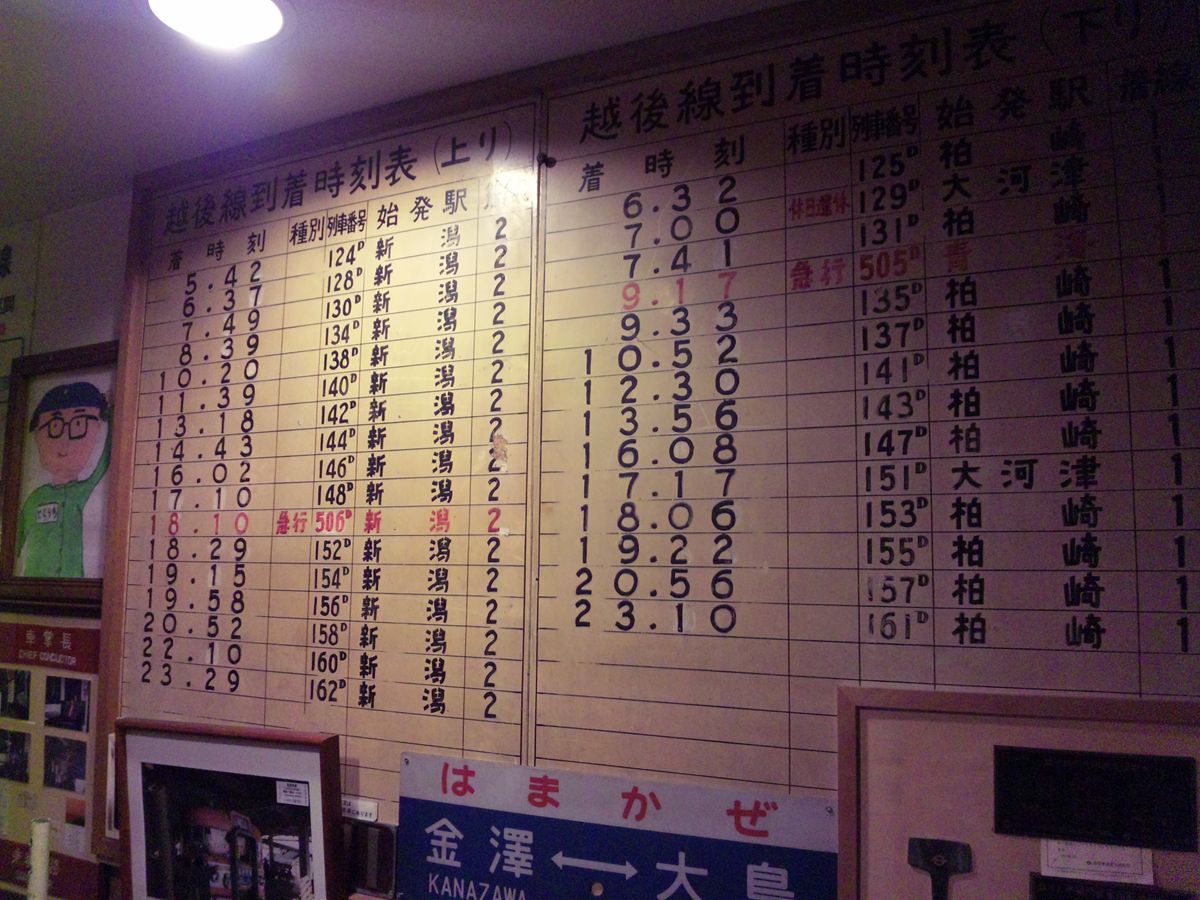 越後線到着時刻表（上り）
着時刻 種別 列車番号 始発駅
5.42 124D 新潟 2
6.37 128D 新潟 2
7.49 130D 新潟 2
8.39 134D 新潟 2
10.20 138D 新潟 2
11.39 140D 新潟 2
13.18 142D 新潟 2
14.43 144D 新潟 2
16.02 146D 新潟 2
17.10 148D 新潟 2
18.10 急行 506D 新潟 2
18.29 152D 新潟 2
19.15 154D 新潟 2
19.58 156D 新潟 2
20.52 158D 新潟 2
22.10 160D 新潟 2
23.29 162D 新潟 2
越後線到着時刻表（下り）
着時刻 種別 列車番号 始発駅 着線
6.32 125D 柏崎 1
7.00 休日運休 129D 大河津 1
7.41 131D 柏崎 1
9.17 急行 505D 青海
9.33 135D 柏崎 1
10.52 137D 柏崎 1
12.30 141D 柏崎 1
13.56 143D 柏崎 1
16.08 147D 柏崎 1
17.17 151D 大河津 1
18.06 153D 柏崎 1
19.22 155D 柏崎 1
20.56 157D 柏崎 1
23.10 161D 柏崎 1
車掌長
CHIEF CONDUCTOR
はまかぜ
金澤⟷大島
KANAZAWA